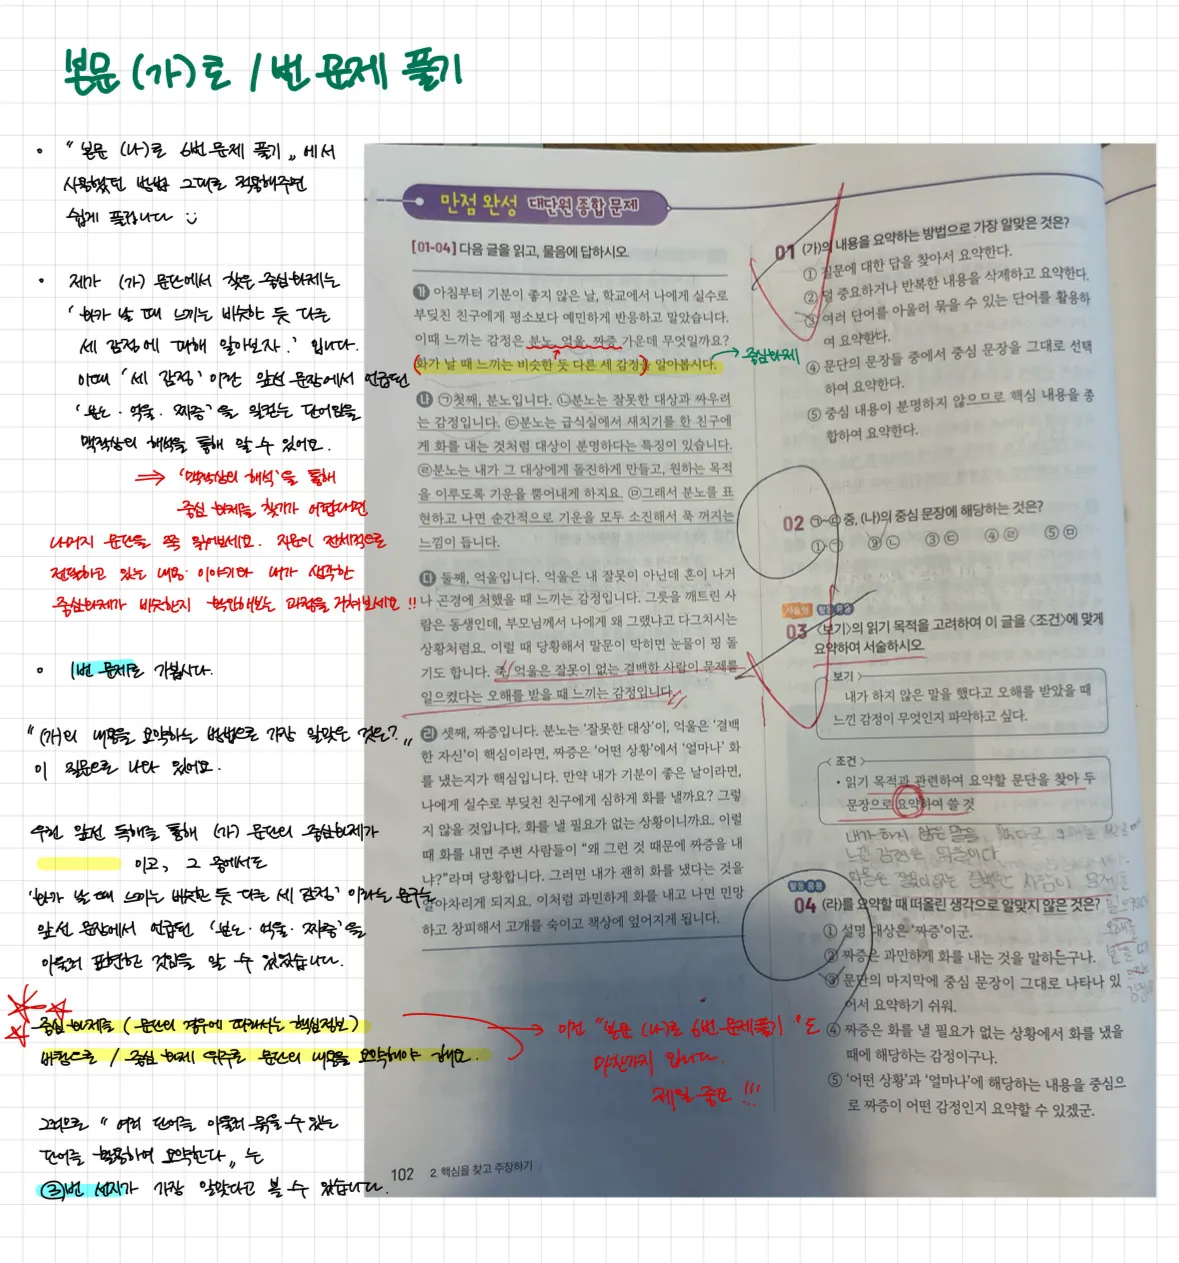 본문 (가)로 1번 문제 풀기
• "본문 (나)로 6번 문제 풀기"에서
사용했던 방법 그대로 적용해주면
쉽게 풀립니다
• 제가 (가) 문단에서 찾은 중심화제는
'화가 날 때 느끼는 비슷한 듯 다른
세 감정에 대해 알아보자.' 입니다.
이때 '세 감정'이란 앞선 문장에서 언급된
'분노·억울·짜증'을 일컫는 단어임을
맥락상의 해석을 통해 알 수 있어요.
⇒ '맥락상의 해석'을 통해
중심 화제를 찾기가 어렵다면
나머지 문단을 쭉 읽어보세요. 지문이 전체적으로
전달하고 있는 내용·이야기와 내가 생각한
중심화제가 비슷한지 확인해보는 과정을 거쳐보세요!!
• 1번 문제로 가봅시다.
"(가)의 내용을 요약하는 방법으로 가장 알맞은 것은?"
이 질문으로 나와 있어요.
우린 앞선 독해를 통해 (가) 문단의 중심화제가
이고, 그 중에서도
'화가 날 때 느끼는 비슷한 듯 다른 세 감정' 이라는 문구는
앞선 문장에서 언급된 '분노·억울·짜증'을
아울러 표현한 것임을 알 수 있었습니다.
중심 화제를 (문단의 경우에 따라서는 핵심정보)
바탕으로 / 중심 화제 위주로 문단의 내용을 요약해야 해요.
→ 이전 "본문 (나)로 6번 문제풀기"도
마찬가지 입니다.
제일 중요!!!
그러므로 "여러 단어를 아울러 묶을 수 있는
단어를 활용하여 요약한다"는
③번 선지가 가장 알맞다고 볼 수 있습니다.
만점 완성 대단원 종합 문제
[01-04] 다음 글을 읽고, 물음에 답하시오.
가 아침부터 기분이 좋지 않은 날, 학교에서 나에게 실수로
부딪친 친구에게 평소보다 예민하게 반응하고 말았습니다.
이때 느끼는 감정은 분노, 억울, 짜증 가운데 무엇일까요?
(화가 날 때 느끼는 비슷한 듯 다른 세 감정)을 알아봅시다.
→ 중심화제
나 ㉠첫째, 분노입니다. ㉡분노는 잘못한 대상과 싸우려
는 감정입니다. ㉢분노는 급식실에서 새치기를 한 친구에
게 화를 내는 것처럼 대상이 분명하다는 특징이 있습니다.
㉣분노는 내가 그 대상에게 돌진하게 만들고, 원하는 목적
을 이루도록 기운을 뿜어내게 하지요. ㉤그래서 분노를 표
현하고 나면 순간적으로 기운을 모두 소진해서 푹 꺼지는
느낌이 듭니다.
다 둘째, 억울입니다. 억울은 내 잘못이 아닌데 혼이 나거
나 곤경에 처했을 때 느끼는 감정입니다. 그릇을 깨트린 사
람은 동생인데, 부모님께서 나에게 왜 그랬냐고 다그치시는
상황처럼요. 이럴 때 당황해서 말문이 막히면 눈물이 핑 돌
기도 합니다. 즉, 억울은 잘못이 없는 결백한 사람이 문제를
일으켰다는 오해를 받을 때 느끼는 감정입니다.
라 셋째, 짜증입니다. 분노는 '잘못한 대상'이, 억울은 '결백
한 자신'이 핵심이라면, 짜증은 '어떤 상황'에서 '얼마나' 화
를 냈는지가 핵심입니다. 만약 내가 기분이 좋은 날이라면,
나에게 실수로 부딪친 친구에게 심하게 화를 낼까요? 그렇
지 않을 것입니다. 화를 낼 필요가 없는 상황이니까요. 이럴
때 화를 내면 주변 사람들이 "왜 그런 것 때문에 짜증을 내
냐?"라며 당황합니다. 그러면 내가 괜히 화를 냈다는 것을
알아차리게 되지요. 이처럼 과민하게 화를 내고 나면 민망
하고 창피해서 고개를 숙이고 책상에 엎어지게 됩니다.
102 2. 핵심을 찾고 주장하기
01 (가)의 내용을 요약하는 방법으로 가장 알맞은 것은?
① 질문에 대한 답을 찾아서 요약한다.
② 덜 중요하거나 반복한 내용을 삭제하고 요약한다.
③ 여러 단어를 아울러 묶을 수 있는 단어를 활용하
여 요약한다.
④ 문단의 문장들 중에서 중심 문장을 그대로 선택
하여 요약한다.
⑤ 중심 내용이 분명하지 않으므로 핵심 내용을 종
합하여 요약한다.
02 ㉠~㉤ 중, (나)의 중심 문장에 해당하는 것은?
① ㉠ ② ㉡ ③ ㉢ ④ ㉣ ⑤ ㉤
서술형
03 <보기>의 읽기 목적을 고려하여 이 글을 <조건>에 맞게
요약하여 서술하시오.
<보기>
내가 하지 않은 말을 했다고 오해를 받았을 때
느낀 감정이 무엇인지 파악하고 싶다.
<조건>
• 읽기 목적과 관련하여 요약할 문단을 찾아 두
문장으로 요약하여 쓸 것
내가 하지 않은 말을 했다고 오해를 받았을 때
느낀 감정은 억울이다
억울은 잘못이 없는 결백한 사람이 문제를
일으켰다
오해를
받을 때
감정
04 (라)를 요약할 때 떠올린 생각으로 알맞지 않은 것은?
① 설명 대상은 '짜증'이군.
② 짜증은 과민하게 화를 내는 것을 말하는구나.
③ 문단의 마지막에 중심 문장이 그대로 나타나 있
어서 요약하기 쉬워.
④ 짜증은 화를 낼 필요가 없는 상황에서 화를 냈을
때에 해당하는 감정이구나.
⑤ '어떤 상황'과 '얼마나'에 해당하는 내용을 중심으
로 짜증이 어떤 감정인지 요약할 수 있겠군.